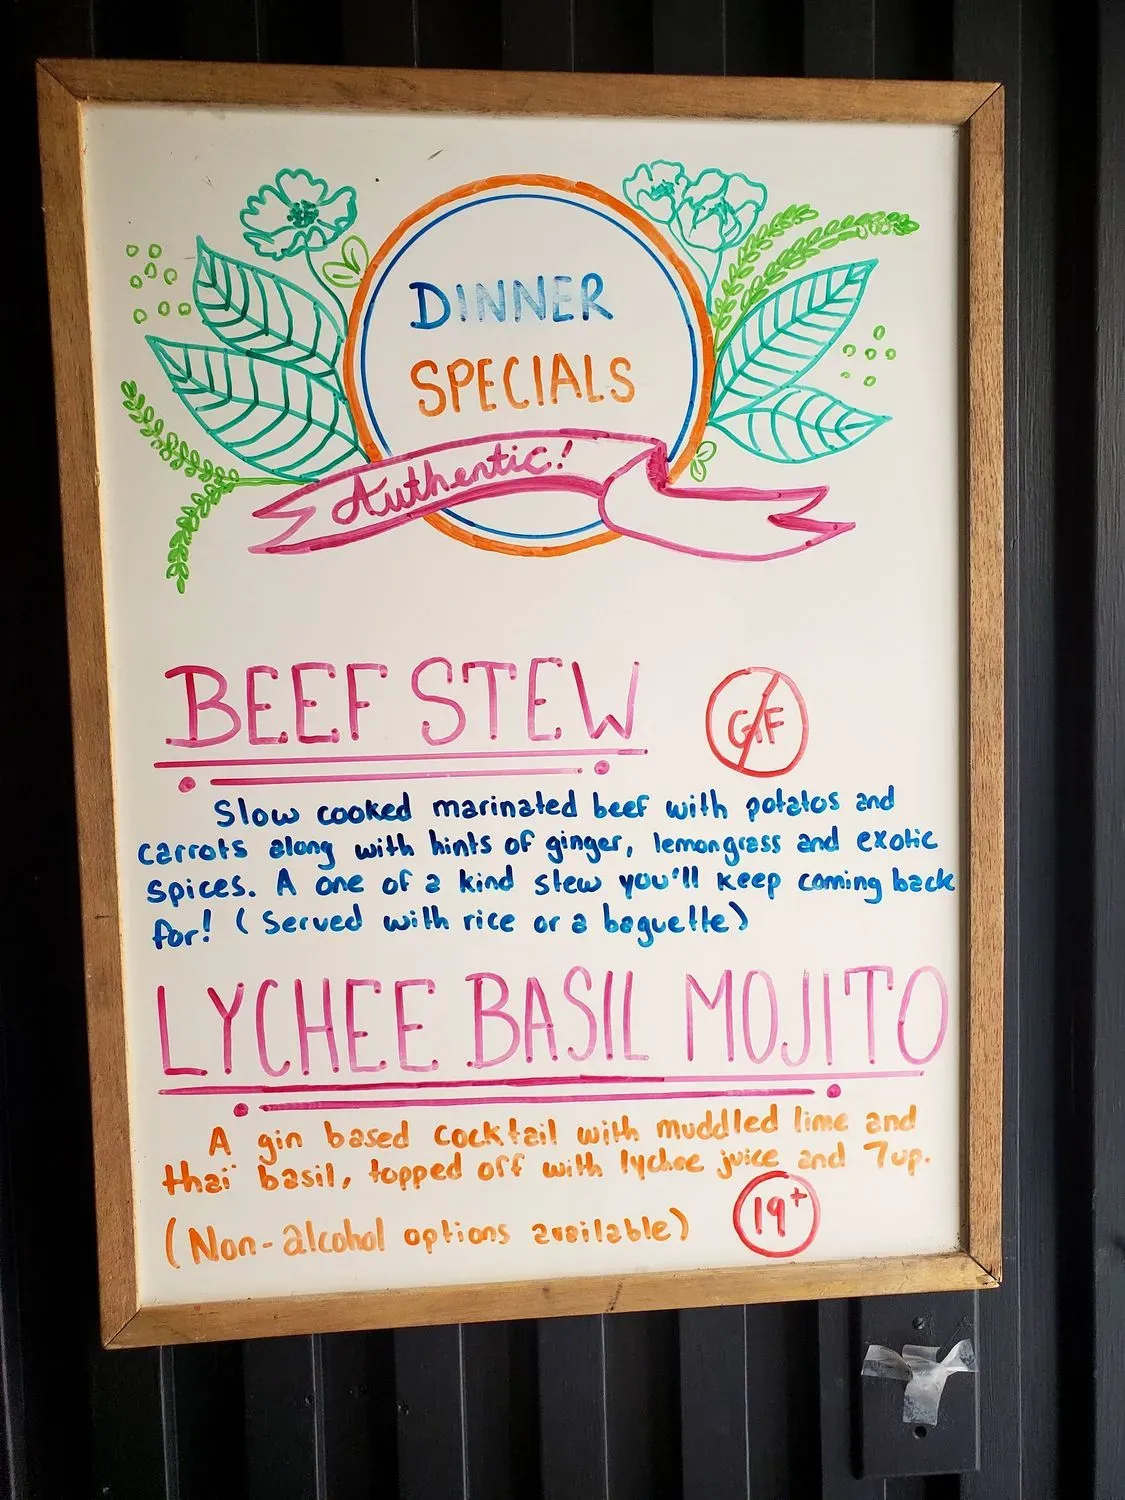 DINNER
SPECIALS
Authentic!
BEEF STEW
GF
Slow cooked marinated beef with potatos and
carrots along with hints of ginger, lemongrass and exotic
spices. A one of a kind stew you'll keep coming back
for! (Served with rice or a baguette)
LYCHEE BASIL MOJITO
A gin based cocktail with muddled lime and
thaï basil, topped off with lychee juice and 7up.
(Non-alcohol options available)
19+